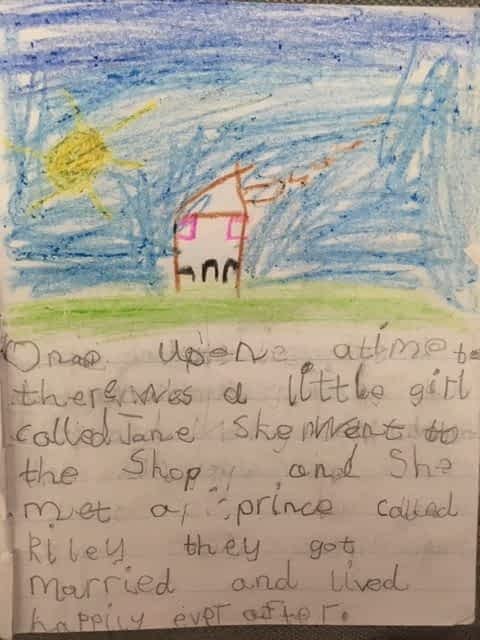 Once upone atime
there was a little girl
called Jane She Went to
the Shop and She
met a prince called
Riley they got
married and lived
happily ever after.